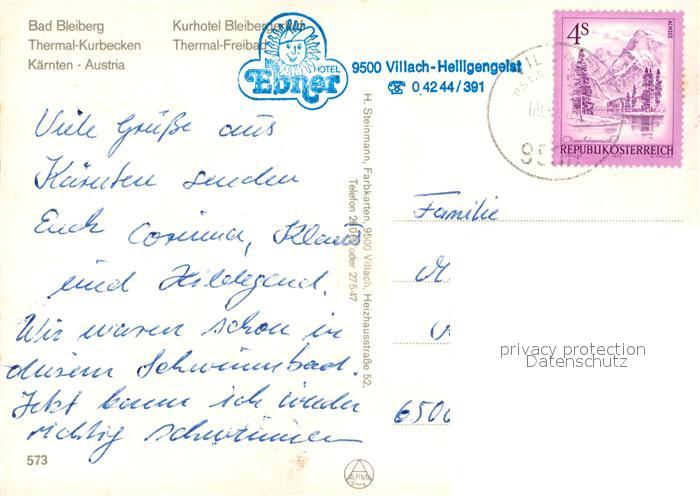 Bad Bleiberg
Thermal-Kurbecken
Kärnten - Austria
Kurhotel Bleibergerhof
Thermal-Freibad
HOTEL
Ebner
9500 Villach-Heiligengeist
☎ 0 42 44 / 391
4s
ALMSEE
REPUBLIK ÖSTERREICH
Viele Grüße aus
Kärnten senden
Euch Corinna, Klaus
und Hildegend.
Wir waren schon in
diesem Schwimmbad.
Jetzt kann ich wieder
richtig schwimmen
H. Steinmann, Farbkarten, 9500 Villach, Heizhausstraße 52,
oder 27547
Familie
M
650
privacy protection
Datenschutz
573
ALPINA